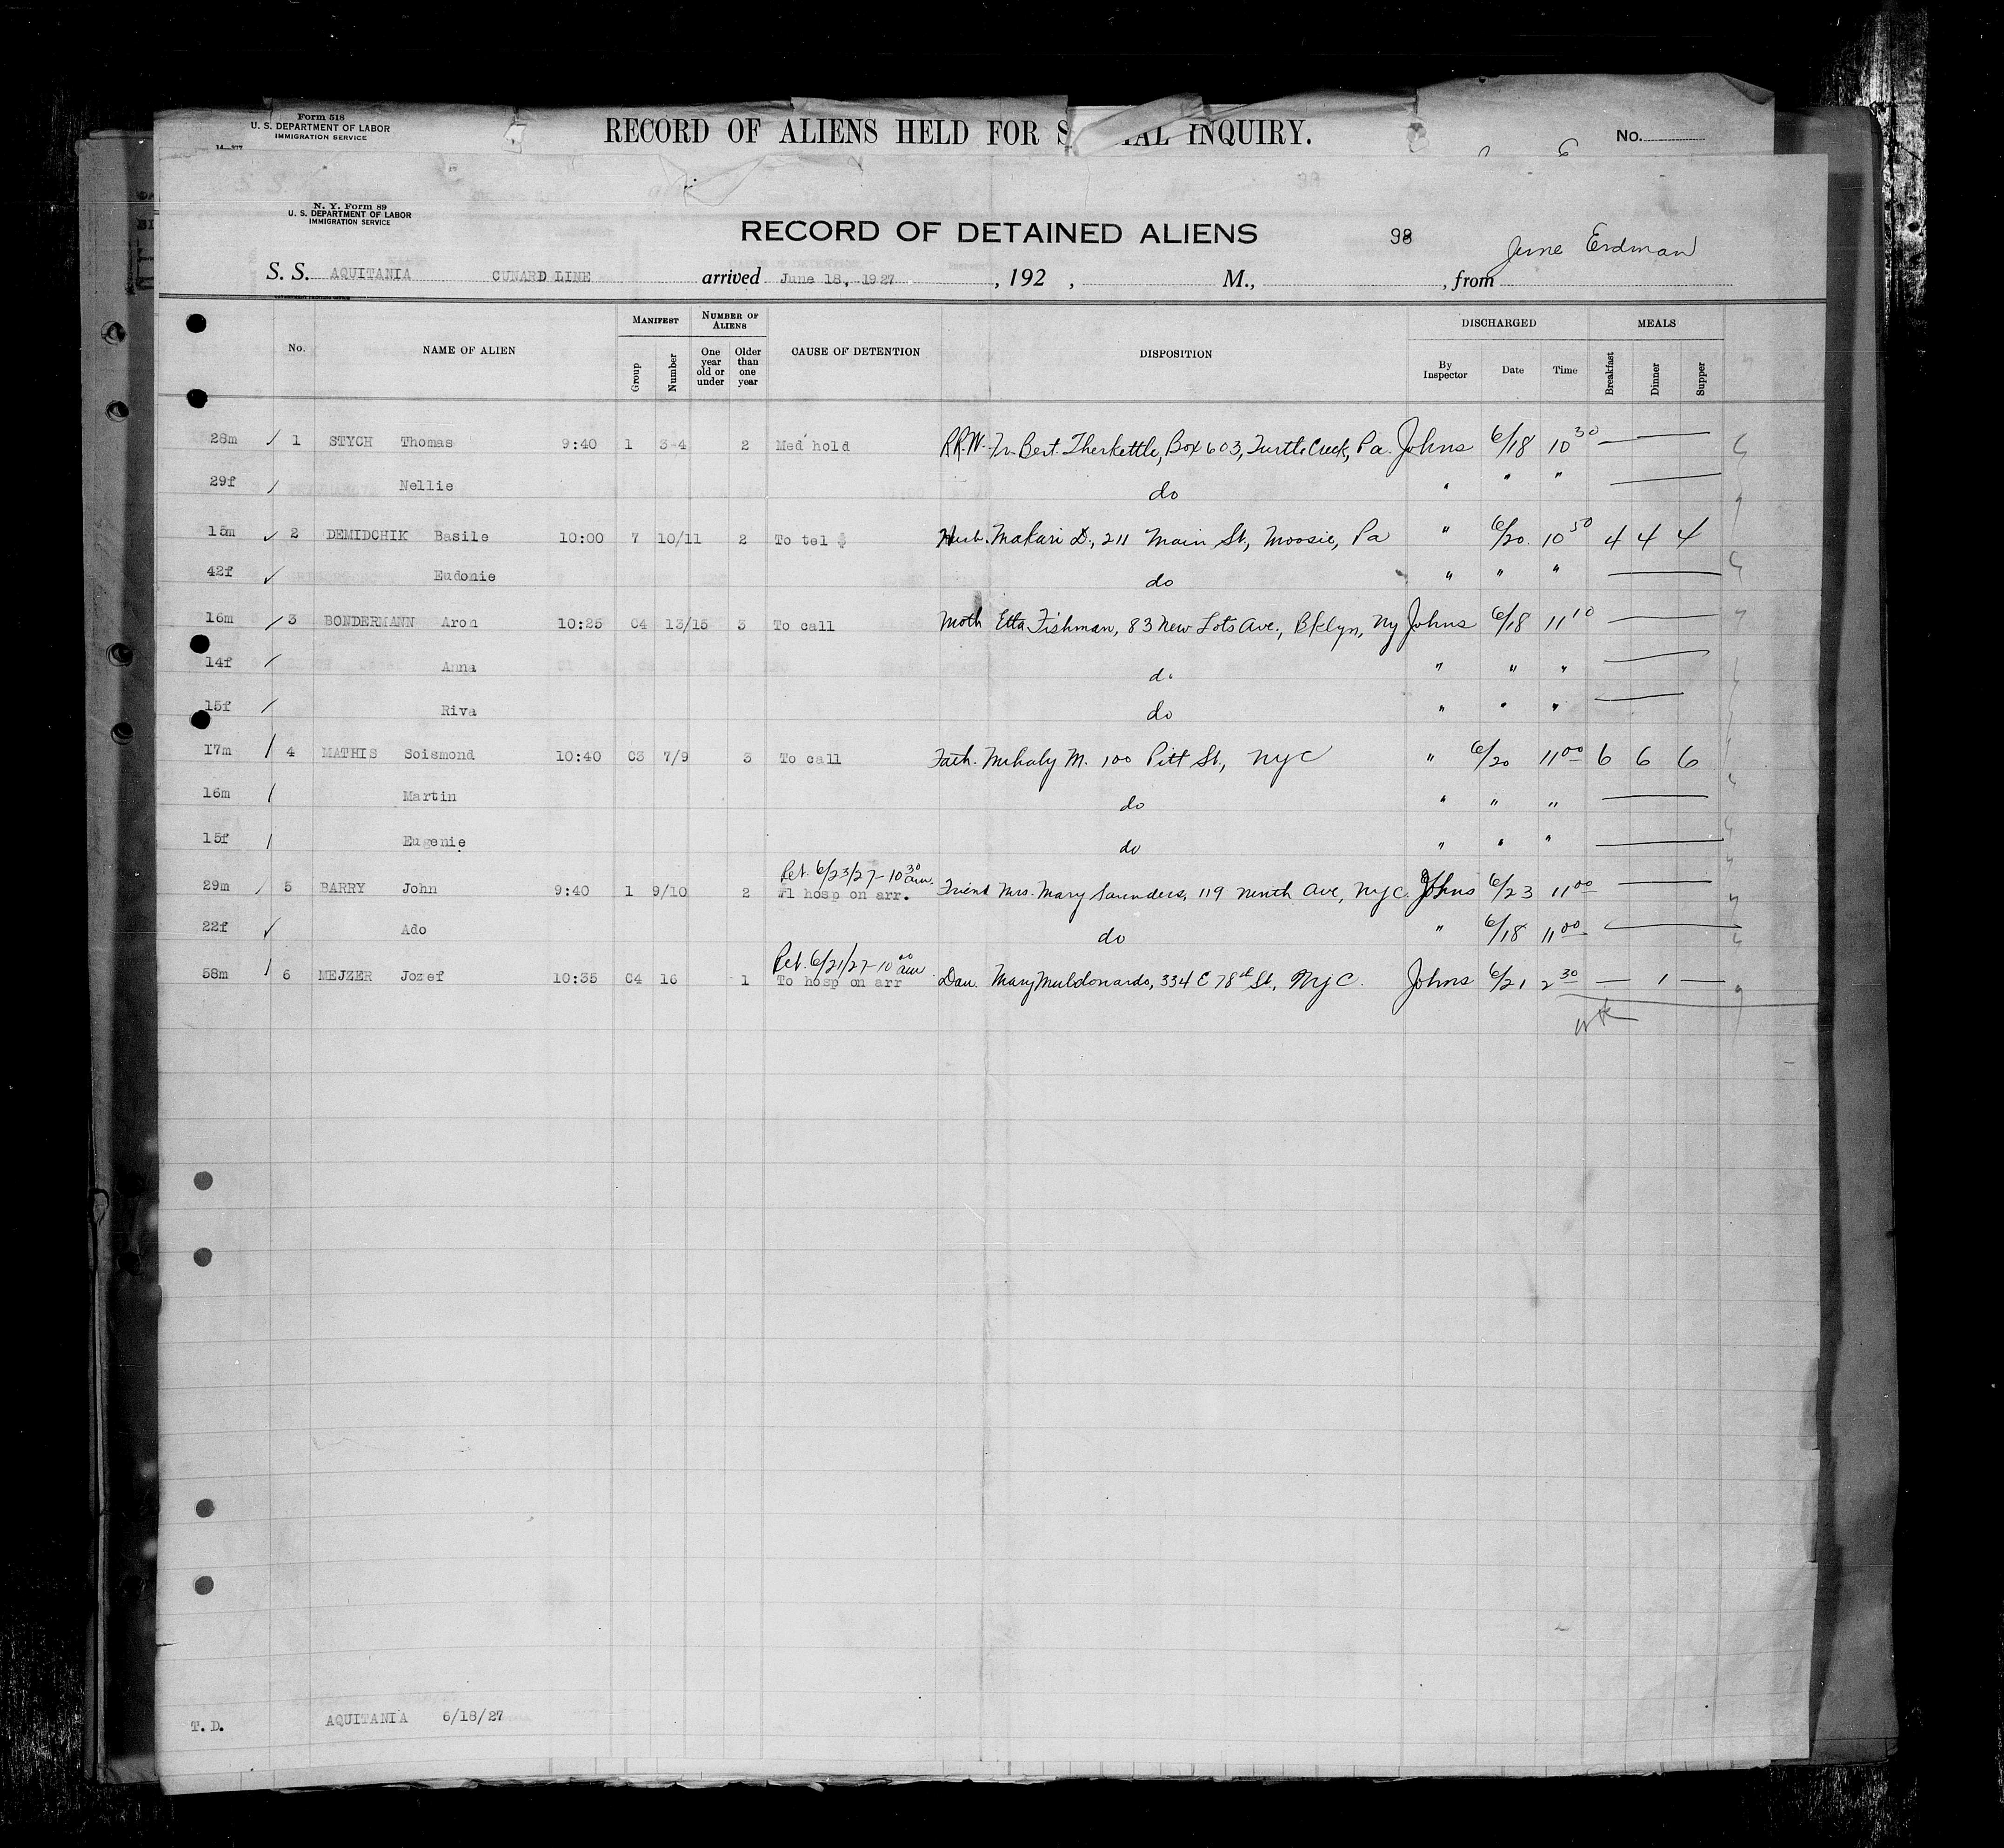 Form 518
U. S. DEPARTMENT OF LABOR
IMMIGRATION SERVICE
14—377
RECORD OF ALIENS HELD FOR S IAL INQUIRY.
No.
N. Y. Form 89
U. S. DEPARTMENT OF LABOR
IMMIGRATION SERVICE
RECORD OF DETAINED ALIENS 98 June Erdman
S. S. AQUITANIA CUNARD LINE arrived June 18, 1927 , 192 , M., , from
No. NAME OF ALIEN MANIFEST Group Number NUMBER OF ALIENS One year old or under Older than one year CAUSE OF DETENTION DISPOSITION DISCHARGED By Inspector Date Time MEALS Breakfast Dinner Supper
28m 1 STYCH Thomas 9:40 1 3-4 2 Med hold R.R.W. Fr. Bert. Therkettle, Box 603, Turtle Creek, Pa. Johns 6/18 10 30 —
29f Nellie do " " " —
15m 2 DEMIDCHIK Basile 10:00 7 10/11 2 To tel $ Husb. Makari D., 211 Main St., Moosic, Pa " 6/20 10 50 4 4 4
42f Eudonie do " " " —
16m 3 BONDERMANN Aron 10:25 C4 13/15 3 To call Moth Etta Fishman, 83 New Lots Ave., Bklyn, NY Johns 6/18 11 10 —
14f Anna do " " " —
15f Riva do " " " —
17m 4 MATHIS Soismond 10:40 C3 7/9 3 To call Fath. Mihaly M. 100 Pitt St., NYC " 6/20 11 00 6 6 6
16m Martin do " " " —
15f Eugenie do " " " —
Ret. 6/23/27-10 30 am.
29m 5 BARRY John 9:40 1 9/10 2 #1 hosp on arr. Friend Mrs. Mary Saunders, 119 Ninth Ave, NYC. Johns 6/23 11 00 —
22f Ado do " 6/18 11 00 —
Ret. 6/21/27-10 00 am
58m 6 MEJZER Jozef 10:35 C4 16 1 To hosp on arr Dau. Mary Muldonardo, 334 E 78th St., NYC. Johns 6/21 2 30 — 1 —
T.D. AQUITANIA 6/18/27